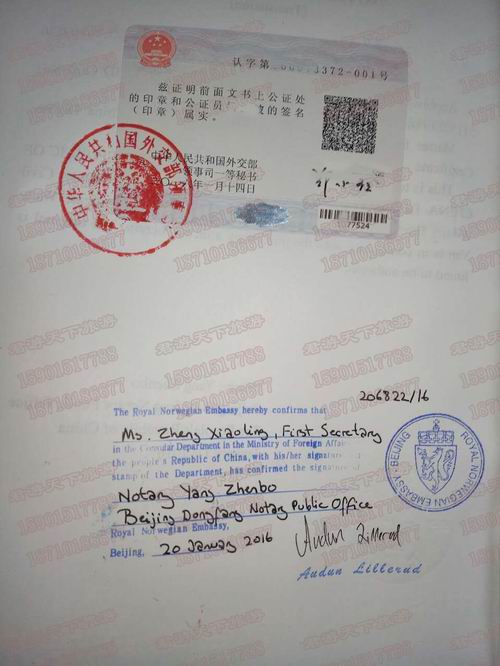 认字第 372-001号
兹证明前面文书上公证处
的印章和公证员 的签名
（印章）属实。
中华人民共和国外交部
领事司一等秘书
年一月十四日
77524
中华人民共和国外交部
206822/16
The Royal Norwegian Embassy hereby confirms that
Ms. Zheng Xiaoling, First Secretary
in the Consular Department in the Ministry of Foreign Affai
the people's Republic of China, with his/her signatur
stamp of the Department, has confirmed the signature of
Notary Yang Zhenbo
Beijing Dongfang Notary Public Office
Royal Norwegian Embassy,
Beijing, 20 January 2016
Audun Lillerud
Audun Lillerud
ROYAL NORWEGIAN EMBASSY · BEIJING ·
君游天下旅游
15901517788
18710186677